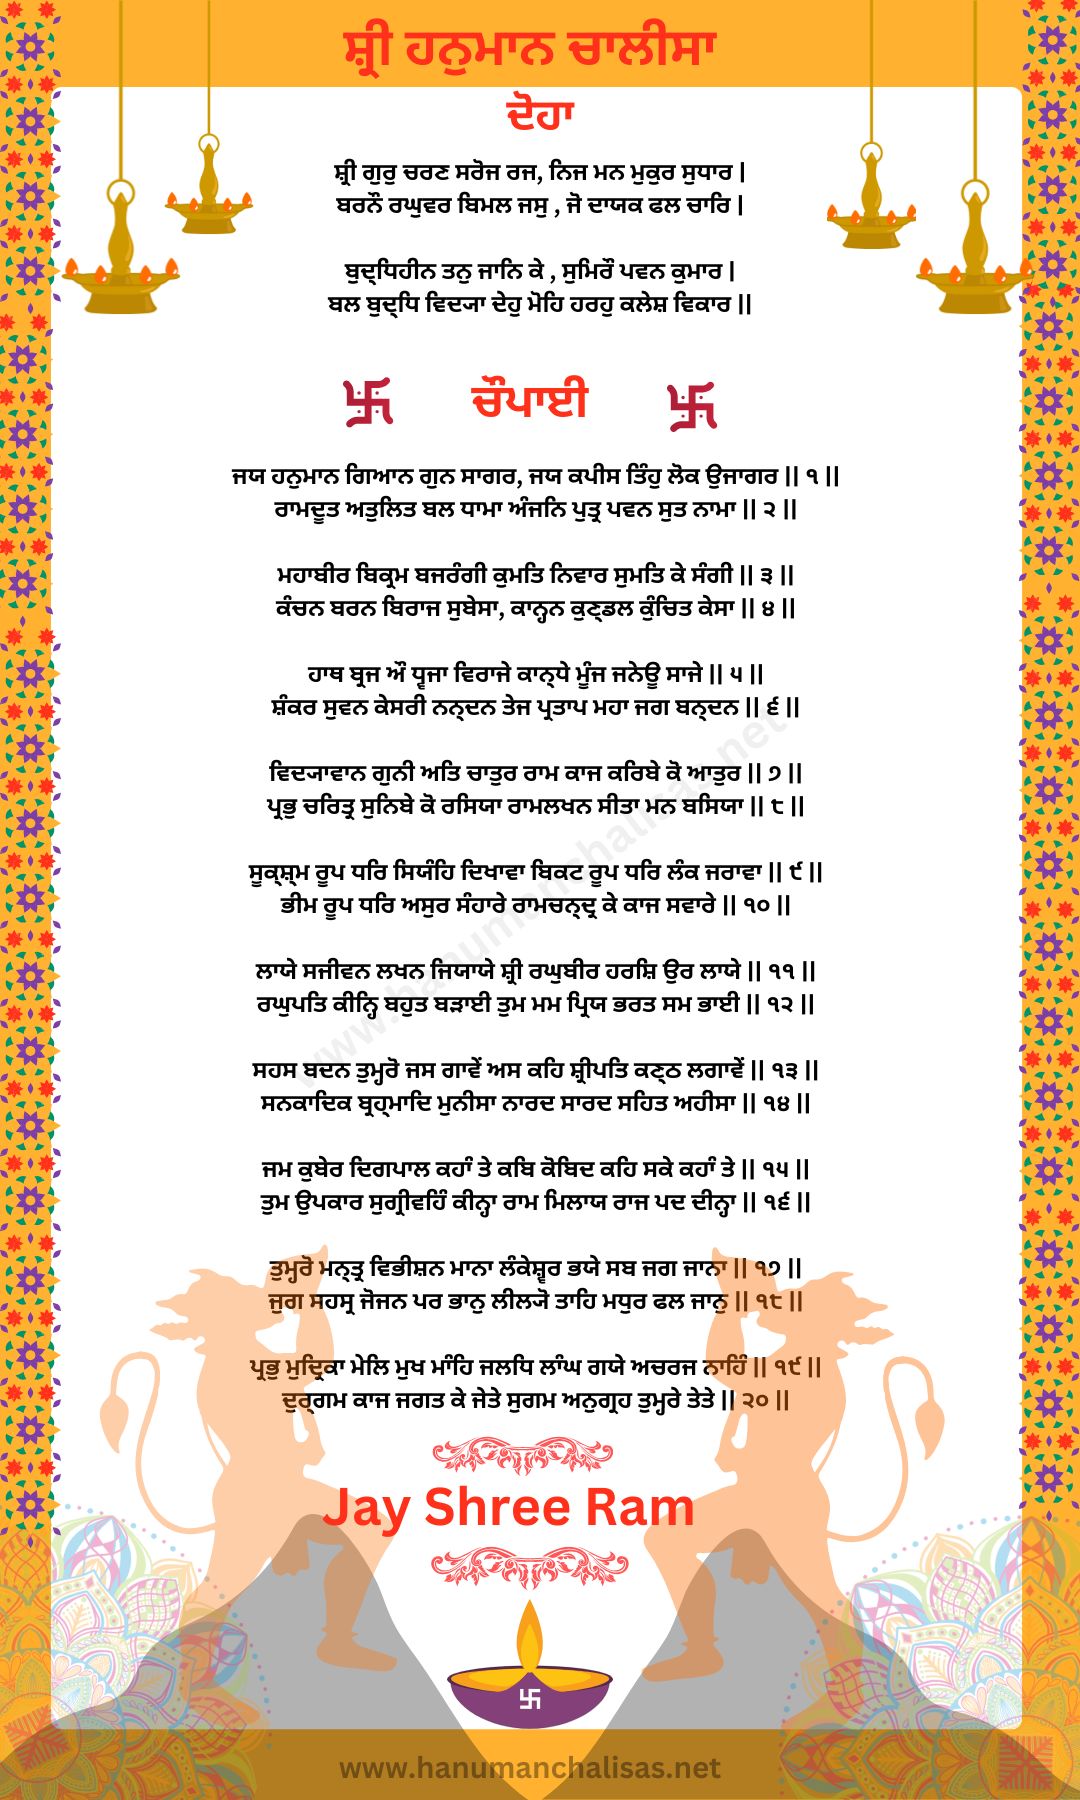 ਸ਼੍ਰੀ ਹਨੁਮਾਨ ਚਾਲੀਸਾ
ਦੋਹਾ
ਸ਼੍ਰੀ ਗੁਰੁ ਚਰਣ ਸਰੋਜ ਰਜ, ਨਿਜ ਮਨ ਮੁਕੁਰ ਸੁਧਾਰ |
ਬਰਨੌ ਰਘੁਵਰ ਬਿਮਲ ਜਸੁ , ਜੋ ਦਾਯਕ ਫਲ ਚਾਰਿ |
ਬੁਦ੍ਧਿਹੀਨ ਤਨੁ ਜਾਨਿ ਕੇ , ਸੁਮਿਰੌ ਪਵਨ ਕੁਮਾਰ |
ਬਲ ਬੁਦ੍ਧਿ ਵਿਦ੍ਯਾ ਦੇਹੁ ਮੋਹਿ ਹਰਹੁ ਕਲੇਸ਼ ਵਿਕਾਰ ||
卐 ਚੌਪਾਈ 卐
ਜਯ ਹਨੁਮਾਨ ਗਿਆਨ ਗੁਨ ਸਾਗਰ, ਜਯ ਕਪੀਸ ਤਿੰਹੁ ਲੋਕ ਉਜਾਗਰ || ੧ ||
ਰਾਮਦੂਤ ਅਤੁਲਿਤ ਬਲ ਧਾਮਾ ਅੰਜਨਿ ਪੁਤ੍ਰ ਪਵਨ ਸੁਤ ਨਾਮਾ || ੨ ||
ਮਹਾਬੀਰ ਬਿਕ੍ਰਮ ਬਜਰੰਗੀ ਕੁਮਤਿ ਨਿਵਾਰ ਸੁਮਤਿ ਕੇ ਸੰਗੀ || ੩ ||
ਕੰਚਨ ਬਰਨ ਬਿਰਾਜ ਸੁਬੇਸਾ, ਕਾਨ੍ਹਨ ਕੁਣ੍ਡਲ ਕੁੰਚਿਤ ਕੇਸਾ || ੪ ||
ਹਾਥ ਬ੍ਰਜ ਔ ਧ੍ਵਜਾ ਵਿਰਾਜੇ ਕਾਨ੍ਧੇ ਮੂੰਜ ਜਨੇਊ ਸਾਜੇ || ੫ ||
ਸ਼ੰਕਰ ਸੁਵਨ ਕੇਸਰੀ ਨਨ੍ਦਨ ਤੇਜ ਪ੍ਰਤਾਪ ਮਹਾ ਜਗ ਬਨ੍ਦਨ || ੬ ||
ਵਿਦ੍ਯਾਵਾਨ ਗੁਨੀ ਅਤਿ ਚਾਤੁਰ ਰਾਮ ਕਾਜ ਕਰਿਬੇ ਕੋ ਆਤੁਰ || ੭ ||
ਪ੍ਰਭੁ ਚਰਿਤ੍ਰ ਸੁਨਿਬੇ ਕੋ ਰਸਿਯਾ ਰਾਮਲਖਨ ਸੀਤਾ ਮਨ ਬਸਿਯਾ || ੮ ||
ਸੂਕ੍ਸ਼੍ਮ ਰੂਪ ਧਰਿ ਸਿਯੰਹਿ ਦਿਖਾਵਾ ਬਿਕਟ ਰੂਪ ਧਰਿ ਲੰਕ ਜਰਾਵਾ || ੯ ||
ਭੀਮ ਰੂਪ ਧਰਿ ਅਸੁਰ ਸੰਹਾਰੇ ਰਾਮਚਨ੍ਦ੍ਰ ਕੇ ਕਾਜ ਸਵਾਰੇ || ੧੦ ||
ਲਾਯੇ ਸਜੀਵਨ ਲਖਨ ਜਿਯਾਯੇ ਸ਼੍ਰੀ ਰਘੁਬੀਰ ਹਰਸ਼ਿ ਉਰ ਲਾਯੇ || ੧੧ ||
ਰਘੁਪਤਿ ਕੀਨ੍ਹਿ ਬਹੁਤ ਬੜਾਈ ਤੁਮ ਮਮ ਪ੍ਰਿਯ ਭਰਤ ਸਮ ਭਾਈ || ੧੨ ||
ਸਹਸ ਬਦਨ ਤੁਮ੍ਹਰੋ ਜਸ ਗਾਵੇਂ ਅਸ ਕਹਿ ਸ਼੍ਰੀਪਤਿ ਕਣ੍ਠ ਲਗਾਵੇਂ || ੧੩ ||
ਸਨਕਾਦਿਕ ਬ੍ਰਹ੍ਮਾਦਿ ਮੁਨੀਸਾ ਨਾਰਦ ਸਾਰਦ ਸਹਿਤ ਅਹੀਸਾ || ੧੪ ||
ਜਮ ਕੁਬੇਰ ਦਿਗਪਾਲ ਕਹਾਁ ਤੇ ਕਬਿ ਕੋਬਿਦ ਕਹਿ ਸਕੇ ਕਹਾਁ ਤੇ || ੧੫ ||
ਤੁਮ ਉਪਕਾਰ ਸੁਗ੍ਰੀਵਹਿੰ ਕੀਨ੍ਹਾ ਰਾਮ ਮਿਲਾਯ ਰਾਜ ਪਦ ਦੀਨ੍ਹਾ || ੧੬ ||
ਤੁਮ੍ਹਰੋ ਮਨ੍ਤ੍ਰ ਵਿਭੀਸ਼ਨ ਮਾਨਾ ਲੰਕੇਸ਼੍ਵਰ ਭਯੇ ਸਬ ਜਗ ਜਾਨਾ || ੧੭ ||
ਜੁਗ ਸਹਸ੍ਰ ਜੋਜਨ ਪਰ ਭਾਨੁ ਲੀਲ੍ਯੋ ਤਾਹਿ ਮਧੁਰ ਫਲ ਜਾਨੁ || ੧੮ ||
ਪ੍ਰਭੁ ਮੁਦ੍ਰਿਕਾ ਮੇਲਿ ਮੁਖ ਮਾਂਹਿ ਜਲਧਿ ਲਾਂਘ ਗਯੇ ਅਚਰਜ ਨਾਹਿੰ || ੧੯ ||
ਦੁਰ੍ਗਮ ਕਾਜ ਜਗਤ ਕੇ ਜੇਤੇ ਸੁਗਮ ਅਨੁਗ੍ਰਹ ਤੁਮ੍ਹਰੇ ਤੇਤੇ || ੨੦ ||
www.hanumanchalisas.net
Jay Shree Ram
卐
www.hanumanchalisas.net